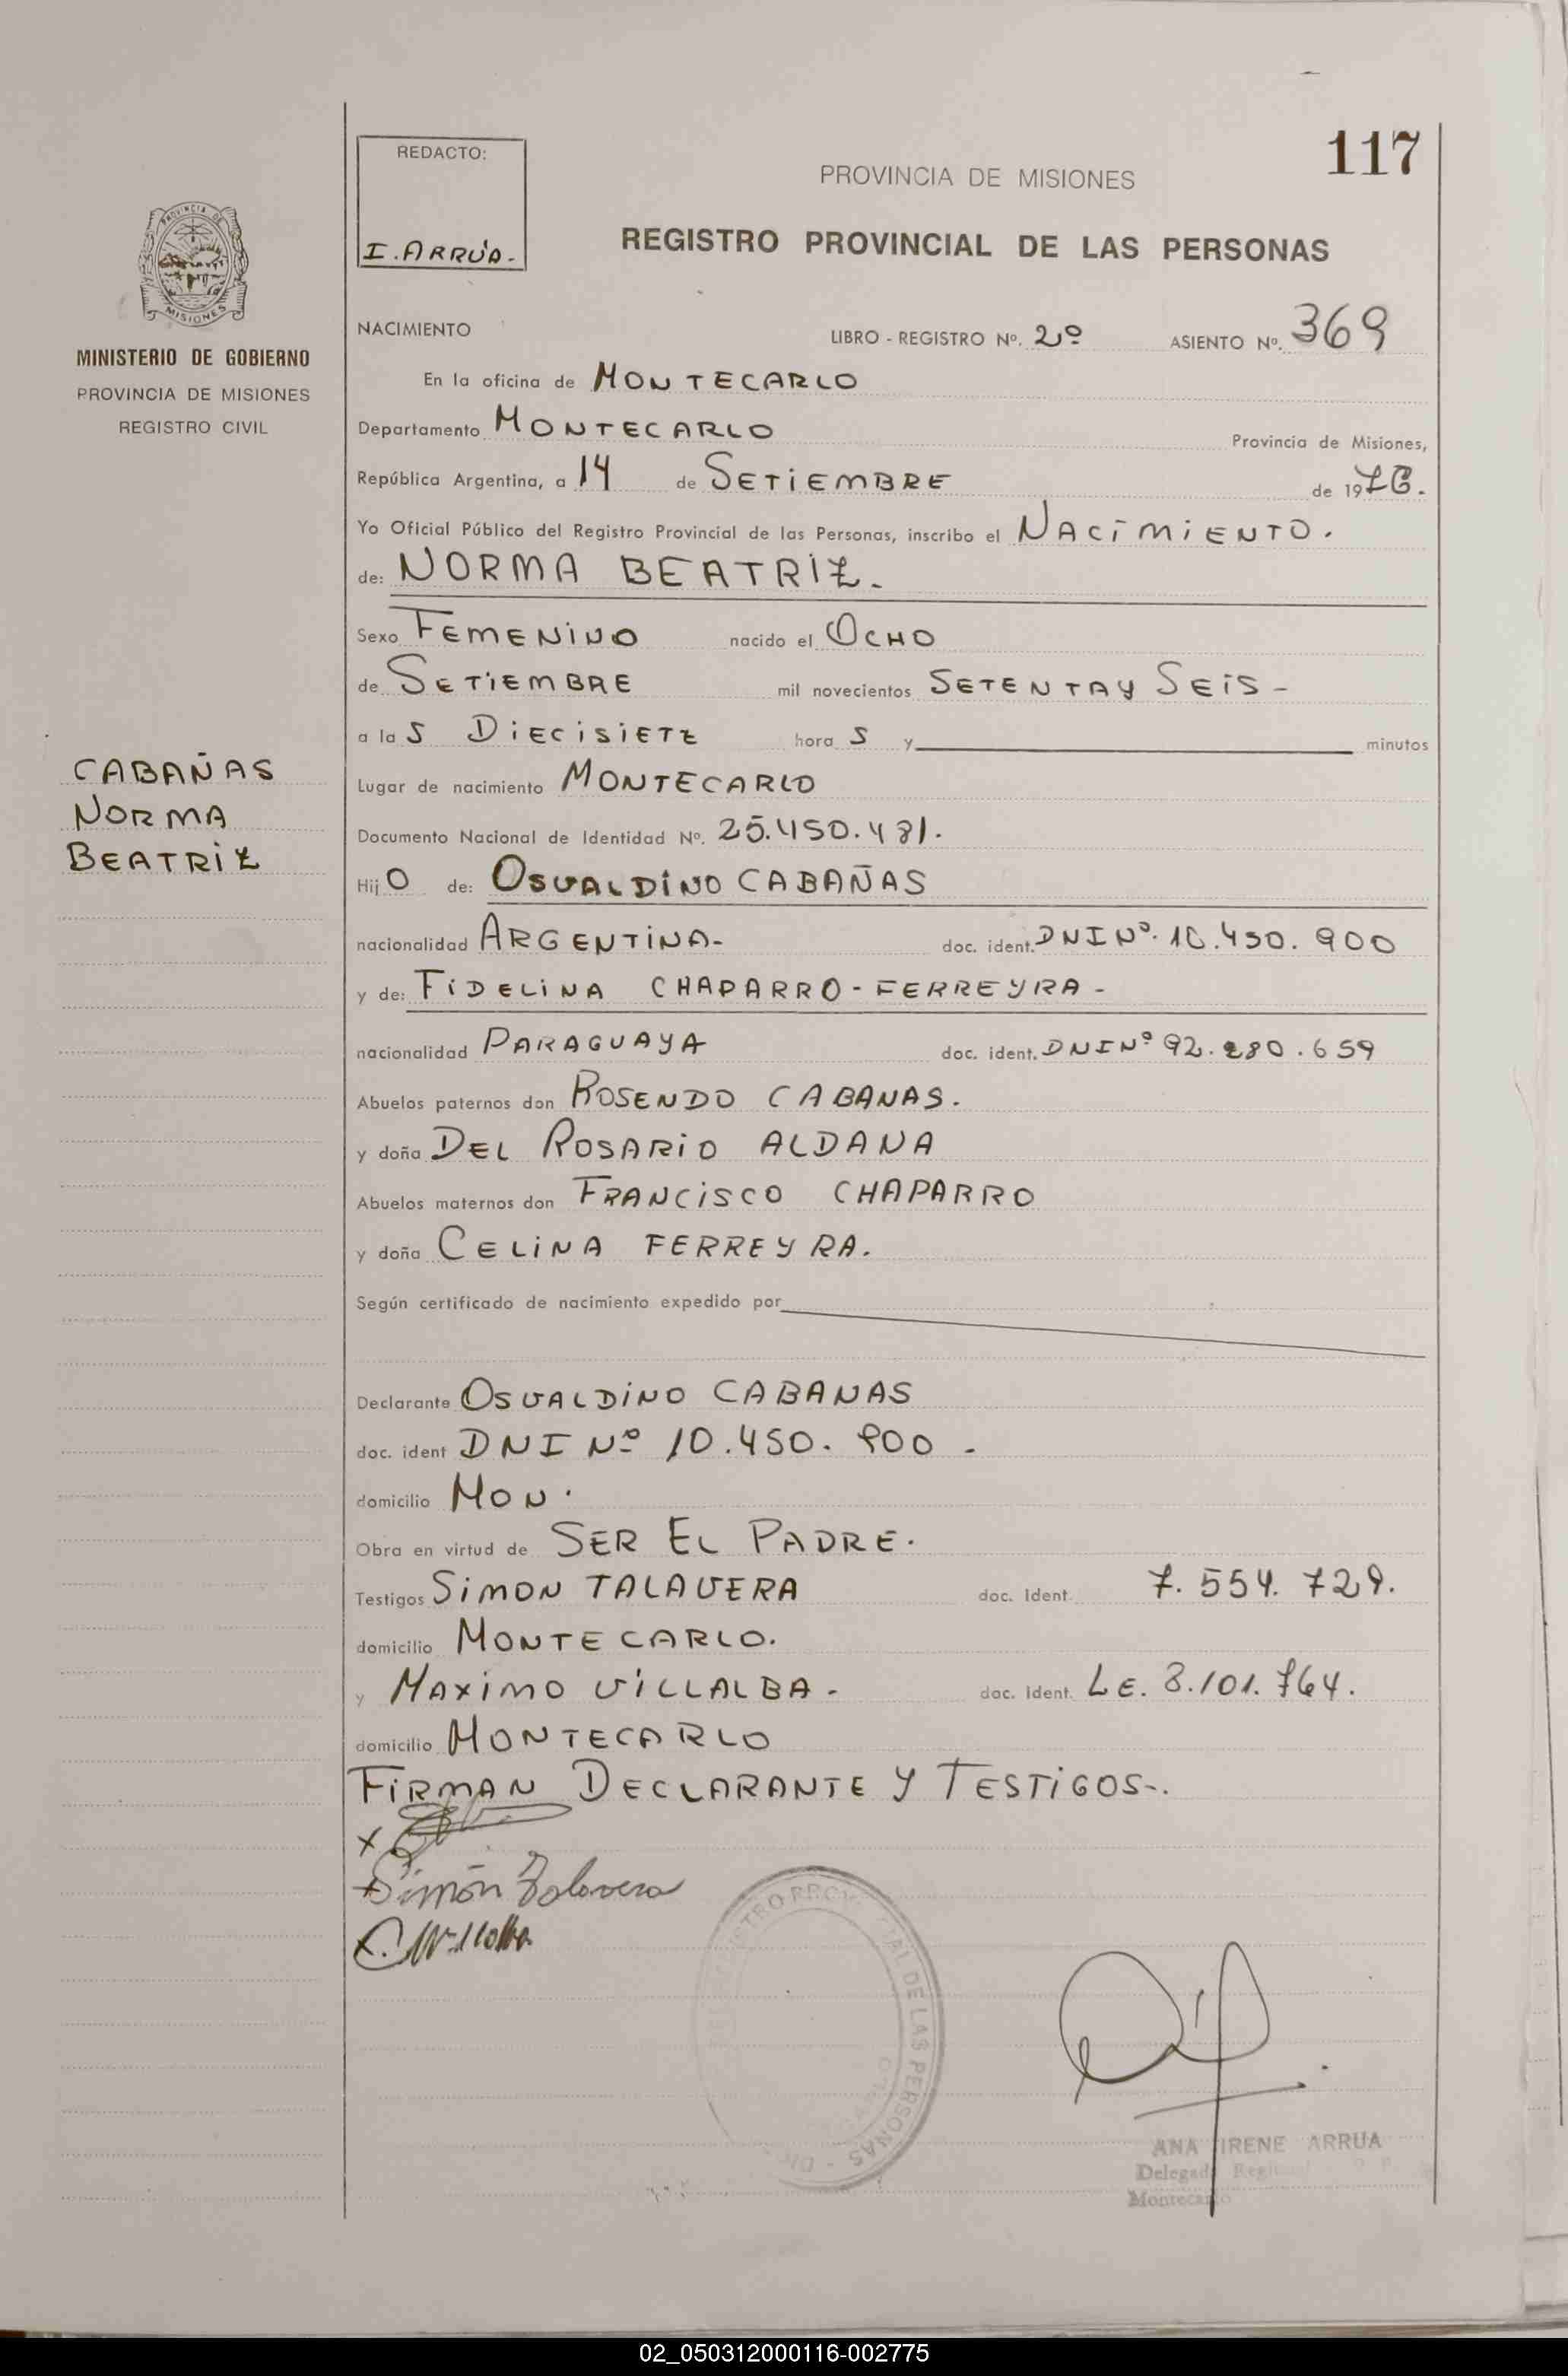 117
REDACTO:
I. ARRÚA.
PROVINCIA DE MISIONES
REGISTRO PROVINCIAL DE LAS PERSONAS
PROVINCIA DE
MISIONES
MINISTERIO DE GOBIERNO
PROVINCIA DE MISIONES
REGISTRO CIVIL
NACIMIENTO LIBRO - REGISTRO Nº. 2º ASIENTO Nº. 369
En la oficina de MONTECARLO
Departamento MONTECARLO Provincia de Misiones,
República Argentina, a 14 de SETIEMBRE de 1976.
Yo Oficial Público del Registro Provincial de las Personas, inscribo el NACIMIENTO.
de: NORMA BEATRIZ.
Sexo FEMENINO nacido el OCHO
de SETIEMBRE mil novecientos SETENTA Y SEIS -
a las DIECISIETE horas y minutos
CABAÑAS
NORMA
BEATRIZ
Lugar de nacimiento MONTECARLO
Documento Nacional de Identidad Nº. 25.450.481.
Hijo de: OSVALDINO CABAÑAS
nacionalidad ARGENTINA- doc. ident. DNI Nº. 10.450.900
y de: FIDELINA CHAPARRO-FERREYRA-
nacionalidad PARAGUAYA doc. ident. DNI Nº 92.280.659
Abuelos paternos don ROSENDO CABANAS.
y doña DEL ROSARIO ALDANA
Abuelos maternos don FRANCISCO CHAPARRO
y doña CELINA FERREYRA.
Según certificado de nacimiento expedido por
Declarante OSVALDINO CABANAS
doc. ident DNI Nº 10.450.900 -
domicilio MON.
Obra en virtud de SER EL PADRE.
Testigos SIMON TALAVERA doc. Ident. 7.554.729.
domicilio MONTECARLO.
y MAXIMO VILLALBA. doc. Ident. LE. 8.101.764.
domicilio MONTECARLO
FIRMAN DECLARANTE Y TESTIGOS-.
x
x Simón Talavera
x.
DE LAS PERSONAS
ANA IRENE ARRUA
Montecarlo
02_050312000116-002775